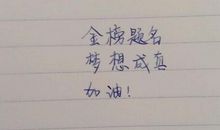 金榜题名
梦想成真
加油！